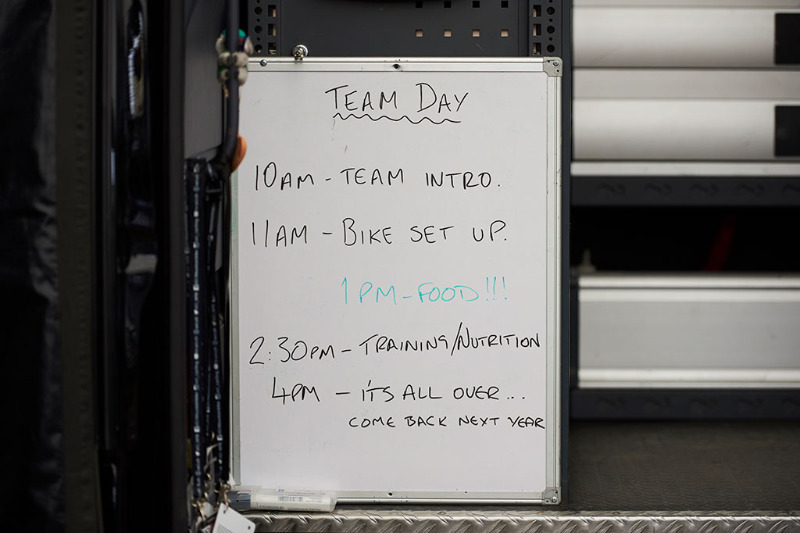 TEAM DAY
10AM - TEAM INTRO.
11AM - BIKE SET UP.
1PM - FOOD!!!
2:30PM - TRAINING/NUTRITION
4PM - IT'S ALL OVER...
COME BACK NEXT YEAR